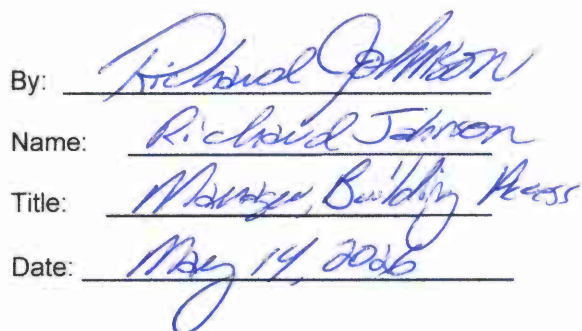 By: Richard Johnson
Name: Richard Johnson
Title: Manager, Building Access
Date: May 14, 2026